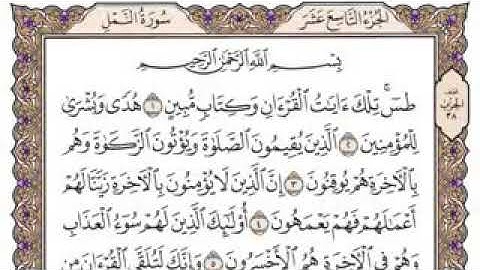 سُورَةُ النَّمْلِ
الجُزْءُ التَّاسِعَ عَشَرَ
بِسْمِ اللَّهِ الرَّحْمَٰنِ الرَّحِيمِ
طسٓۚ تِلْكَ ءَايَٰتُ ٱلْقُرْءَانِ وَكِتَابٍ مُّبِينٍ ١ هُدًى وَبُشْرَىٰ
لِلْمُؤْمِنِينَ ٢ ٱلَّذِينَ يُقِيمُونَ ٱلصَّلَوٰةَ وَيُؤْتُونَ ٱلزَّكَوٰةَ وَهُم
بِٱلْءَاخِرَةِ هُمْ يُوقِنُونَ ٣ إِنَّ ٱلَّذِينَ لَا يُؤْمِنُونَ بِٱلْءَاخِرَةِ زَيَّنَّا لَهُمْ
أَعْمَٰلَهُمْ فَهُمْ يَعْمَهُونَ ٤ أُوْلَٰٓئِكَ ٱلَّذِينَ لَهُمْ سُوٓءُ ٱلْعَذَابِ
وَهُمْ فِى ٱلْءَاخِرَةِ هُمُ ٱلْأَخْسَرُونَ ٥ وَإِنَّكَ لَتُلَقَّى ٱلْقُرْءَانَ مِن
الحزب
٣٨